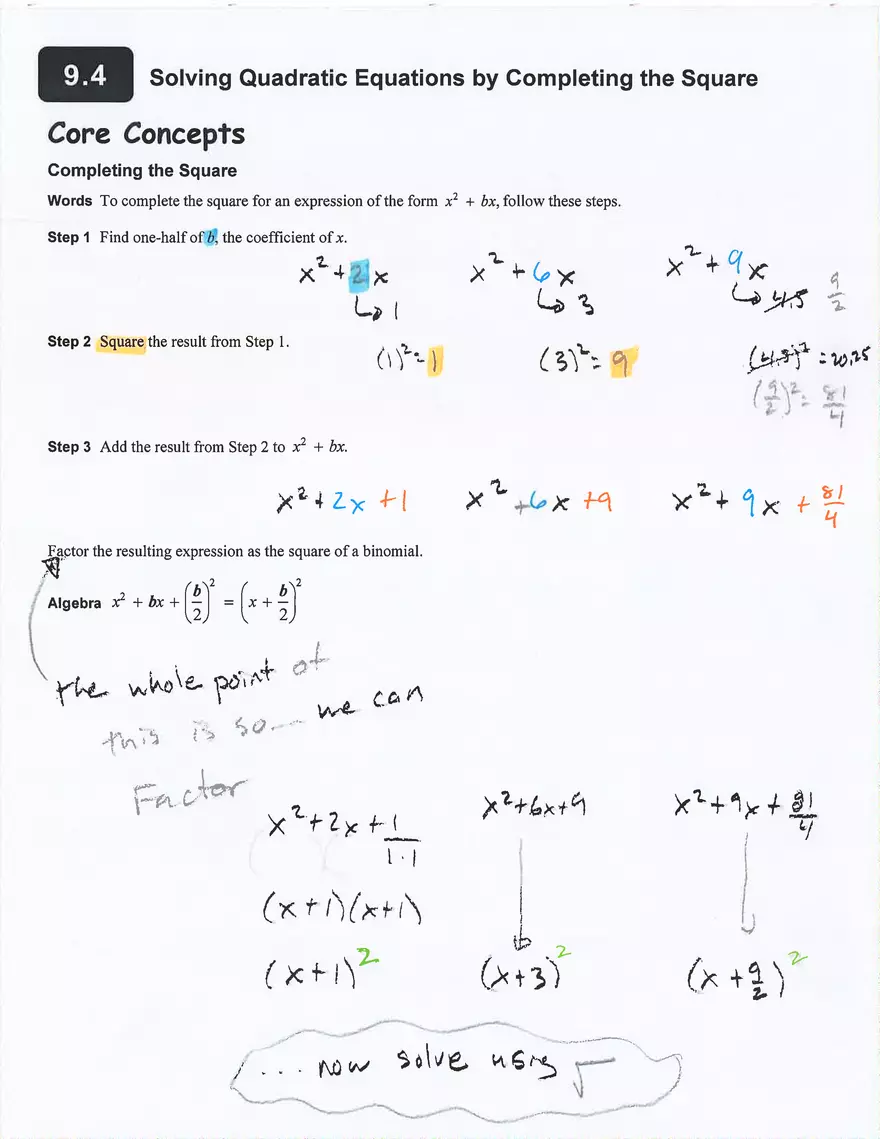 9.4 Solving Quadratic Equations by Completing the Square
Core Concepts
Completing the Square
Words To complete the square for an expression of the form x² + bx, follow these steps.
Step 1 Find one-half of b, the coefficient of x.
x² + 2x x² + 6x x² + 9x
↳ 1 ↳ 3 ↳ 4.5 9/2
Step 2 Square the result from Step 1.
(1)² = 1 (3)² = 9 (4.5)² = 20.25
(9/2)² = 81/4
Step 3 Add the result from Step 2 to x² + bx.
x² + 2x + 1 x² + 6x + 9 x² + 9x + 81/4
Factor the resulting expression as the square of a binomial.
Algebra x² + bx + (b/2)² = (x + b/2)²
the whole point of
this is so we can
Factor
x² + 2x + 1 x² + 6x + 9 x² + 9x + 81/4
1 · 1
(x + 1)(x + 1)
(x + 1)² (x + 3)² (x + 9/2)²
... now solve using √